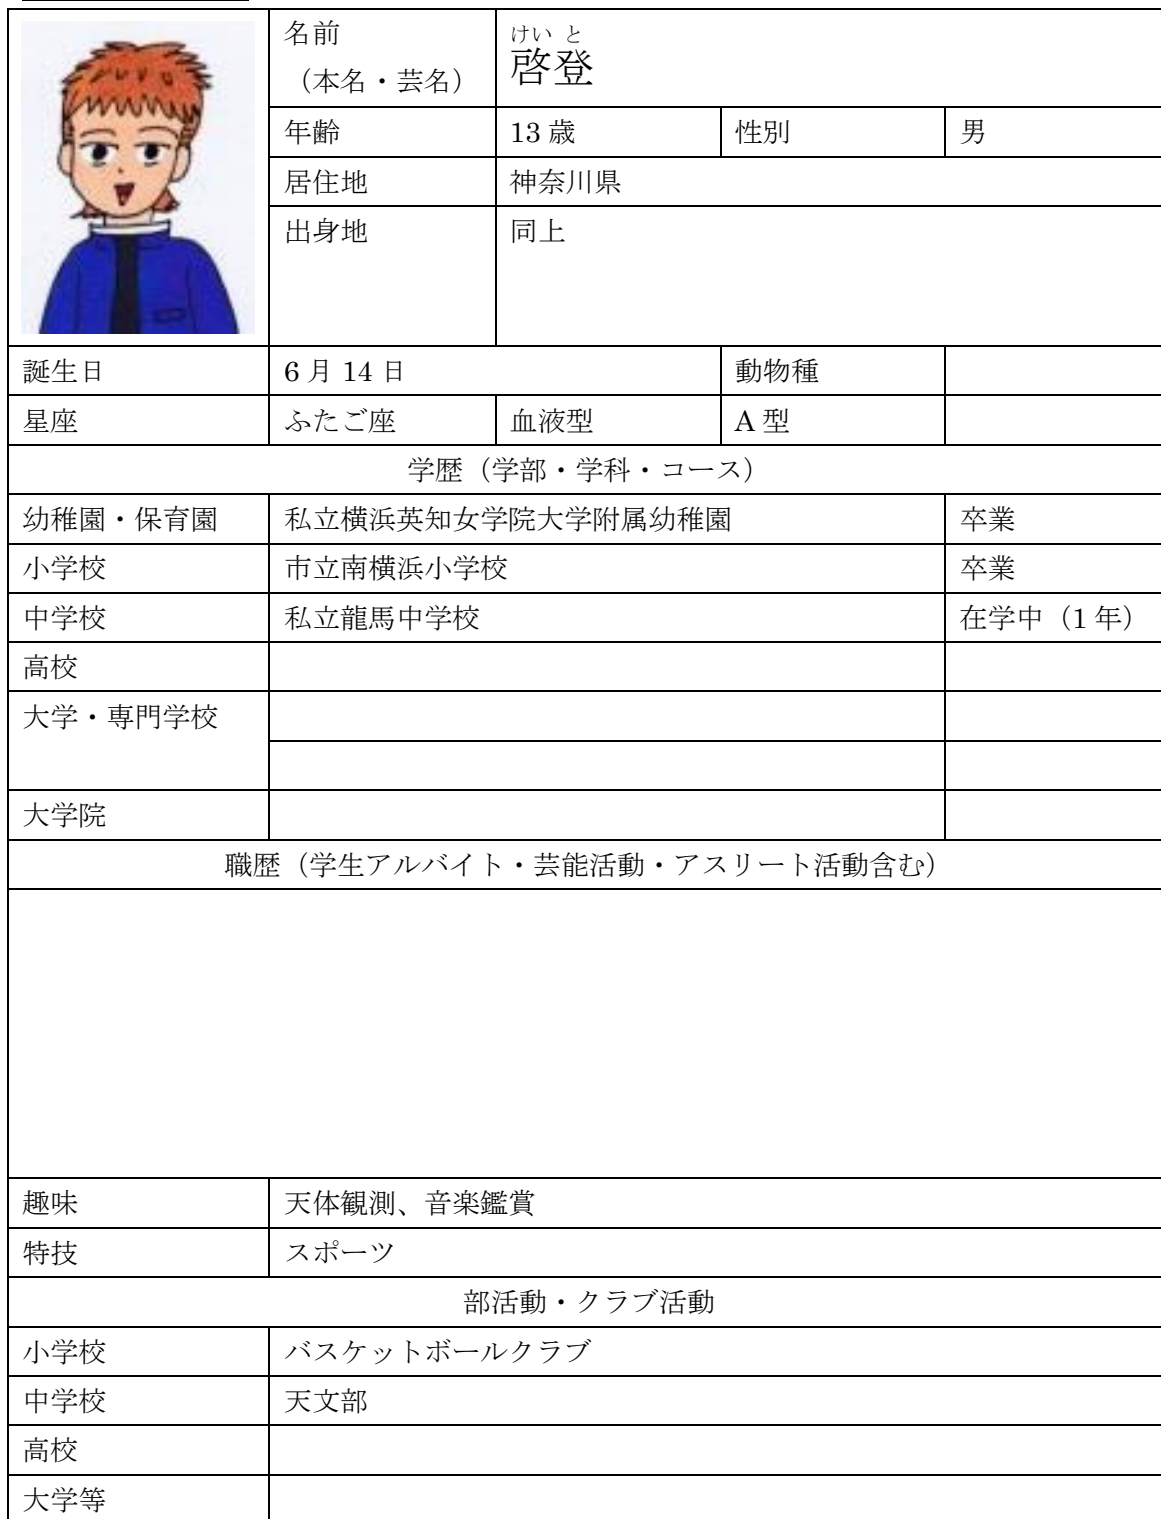 けい と
名前 啓登
（本名・芸名）
年齢 13歳 性別 男
居住地 神奈川県
出身地 同上
誕生日 6月14日 動物種
星座 ふたご座 血液型 A型
学歴（学部・学科・コース）
幼稚園・保育園 私立横浜英知女学院大学附属幼稚園 卒業
小学校 市立南横浜小学校 卒業
中学校 私立龍馬中学校 在学中（1年）
高校
大学・専門学校
大学院
職歴（学生アルバイト・芸能活動・アスリート活動含む）
趣味 天体観測、音楽鑑賞
特技 スポーツ
部活動・クラブ活動
小学校 バスケットボールクラブ
中学校 天文部
高校
大学等